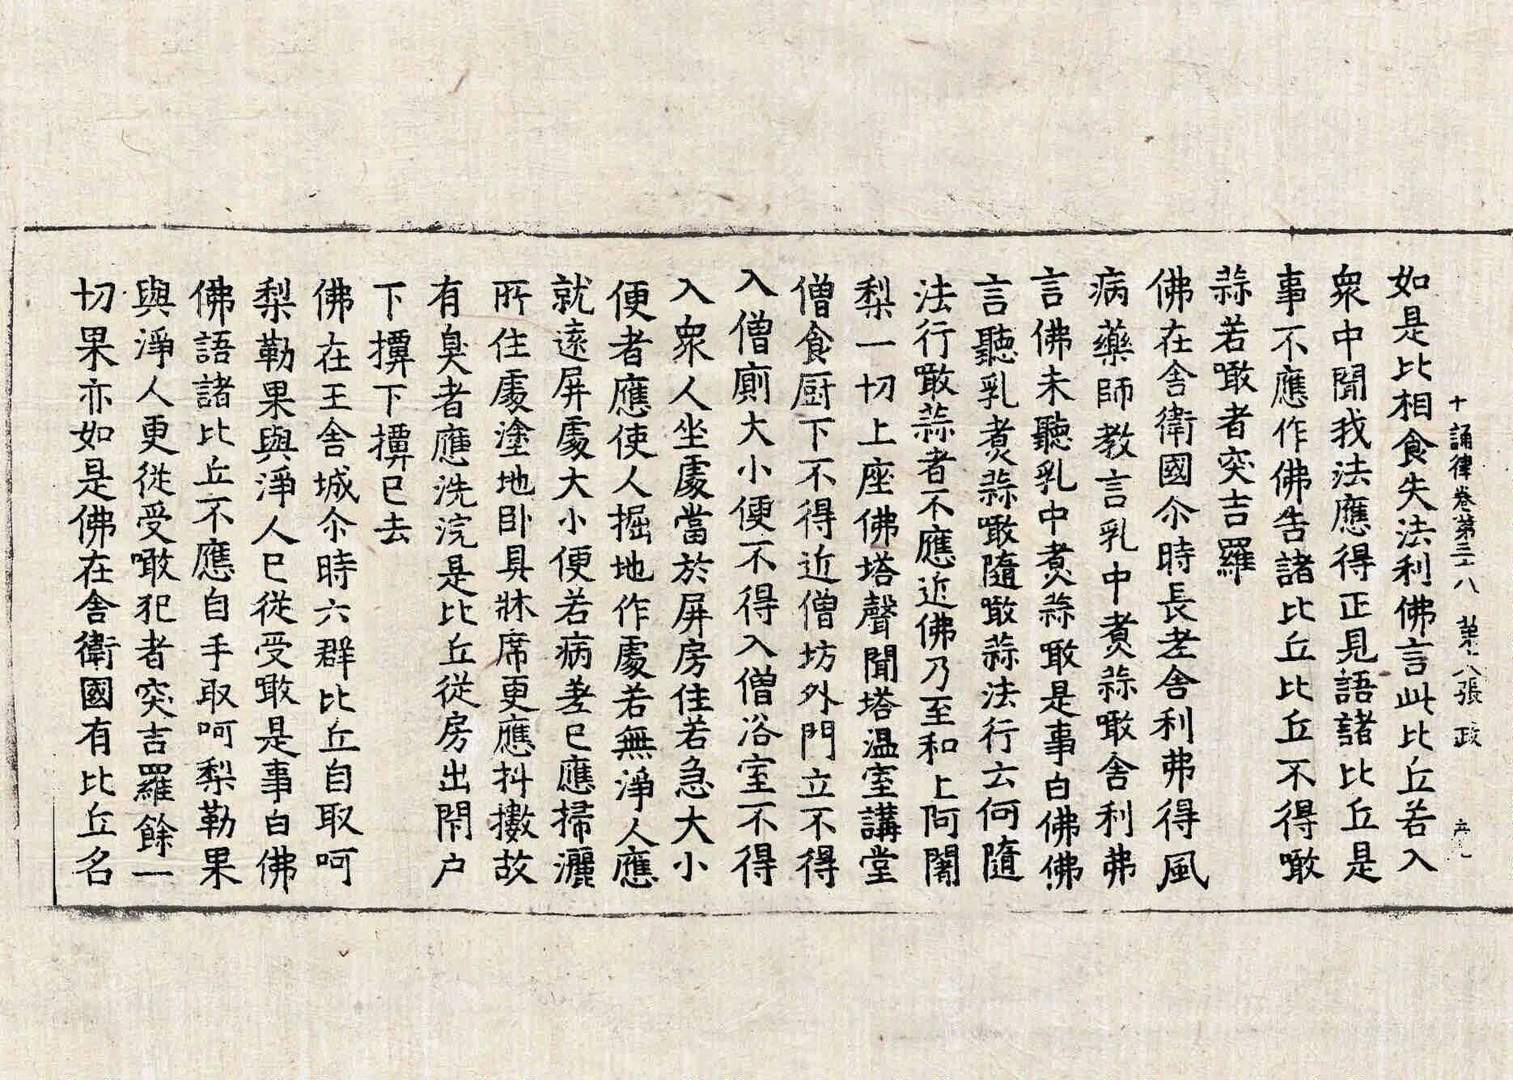 十誦律卷第三十八　第十八張　政
如是比相食失法利佛言此比丘若入
衆中聞我法應得正見語諸比丘是
事不應作佛告諸比丘比丘不得噉
蒜若噉者突吉羅
佛在舍衛國尒時長老舍利弗得風
病藥師教言乳中煑蒜噉舍利弗
言佛未聽乳中煑蒜噉是事白佛佛
言聽乳煑蒜噉隨噉蒜法行云何隨
法行噉蒜者不應近佛乃至和上阿闍
梨一切上座佛塔聲聞塔温室講堂
僧食厨下不得近僧坊外門立不得
入僧廁大小便不得入僧浴室不得
入衆人坐處當於屏房住若急大小
便者應使人掘地作處若無淨人應
就遠屏處大小便若病差已應掃灑
所住處塗地卧具牀席更應抖擻故
有臭者應洗浣是比丘從房出閇户
下撢下撢已去
佛在王舍城尒時六群比丘自取呵
梨勒果與淨人已從受噉是事白佛
佛語諸比丘不應自手取呵梨勒果
與淨人更從受噉犯者突吉羅餘一
切果亦如是佛在舍衛國有比丘名